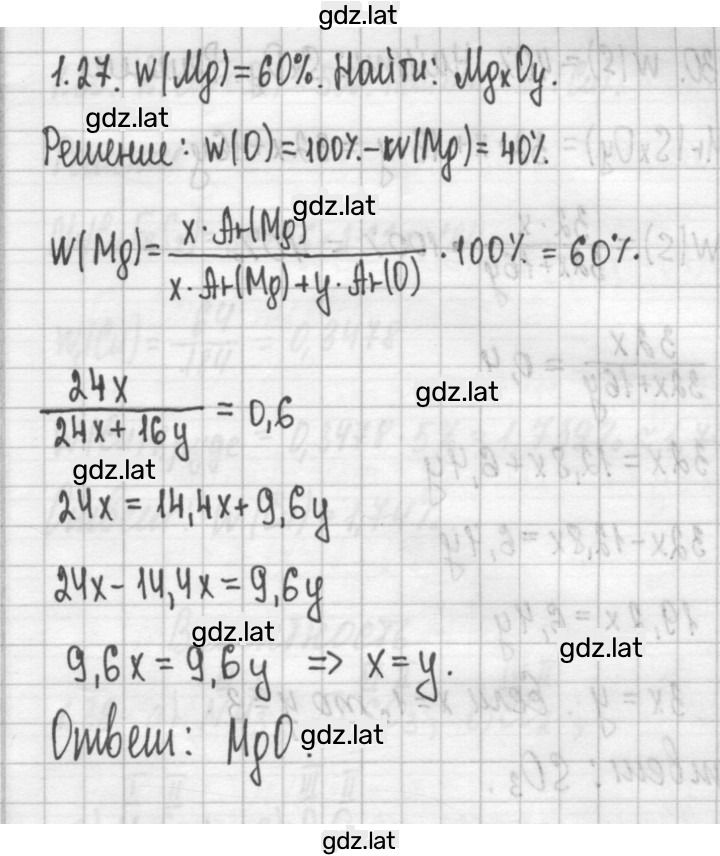 gdz.lat
1.27. W(Mg)=60%. Найти: MgxOy.
gdz.lat
Решение: W(O)=100%-W(Mg)=40%.
gdz.lat
W(Mg)= x·Ar(Mg) / x·Ar(Mg)+y·Ar(O) ·100% = 60%.
24x / 24x+16y = 0,6
gdz.lat
gdz.lat
24x=14,4x+9,6y
24x-14,4x=9,6y
gdz.lat
9,6x=9,6y => x=y.
gdz.lat
Ответ: MgO.
gdz.lat
gdz.lat